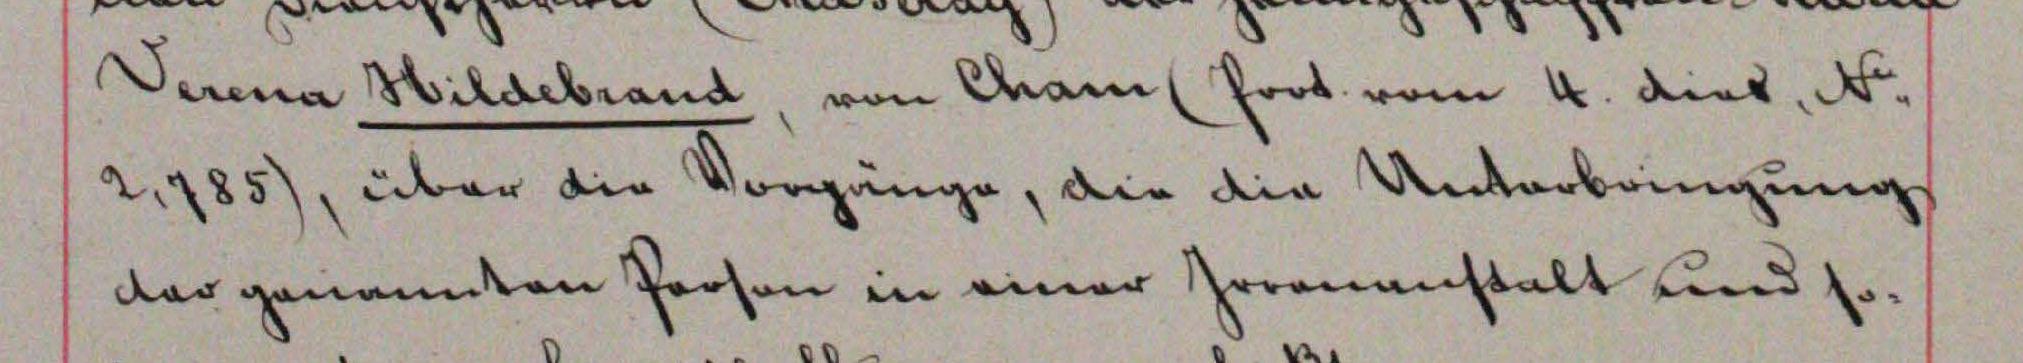 Verena Hildebrand, von Cham (Prot. vom 4. dies, No.
2,785), über die Vorgänge, die die Unterbringung
der genannten Person in einer Irrenanstalt und so-